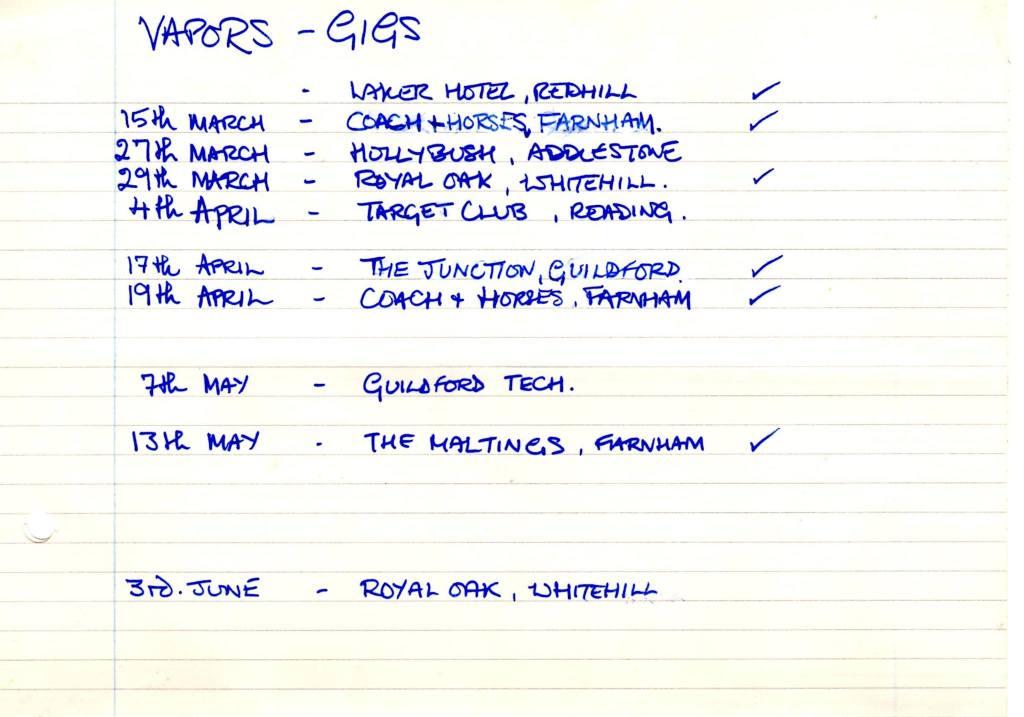 VAPORS - GIGS
- LAKER HOTEL, REDHILL ✓
15th MARCH - COACH + HORSES, FARNHAM. ✓
27th MARCH - HOLLYBUSH, ADDLESTONE
29th MARCH - ROYAL OAK, WHITEHILL. ✓
4th APRIL - TARGET CLUB, READING.
17th APRIL - THE JUNCTION, GUILDFORD. ✓
19th APRIL - COACH + HORSES, FARNHAM ✓
7th MAY - GUILDFORD TECH.
13th MAY - THE MALTINGS, FARNHAM ✓
3rd. JUNE - ROYAL OAK, WHITEHILL